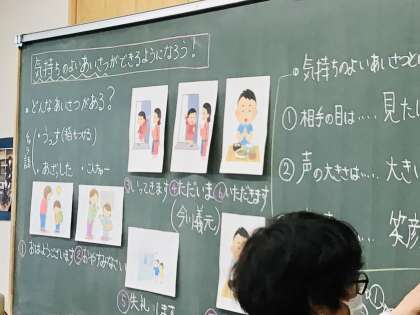 気持ちのよいあいさつができるようになろう！
○どんなあいさつがある？
・うっす（
・あざした ・こんちゃー
①おはようございます ②おやすみなさい
③いってきます ④ただいま ⑥いただきます
⑤失礼します
○気持ちのよいあいさつと
①相手の目は‥‥ 見た
②声の大きさは‥‥ 大き
笑顔
①